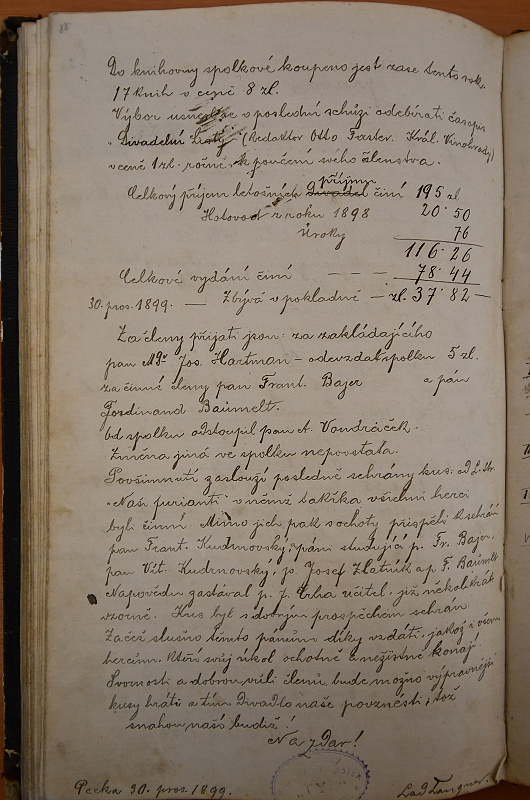 Do knihovny spolkové koupeno jest zase tento rok
17 knih v ceně 8 zl.
Výbor usnesl se v poslední schůzi odebírati časopis
"Divadelní Listy" (Redaktor Otto Faster. Král. Vinohrady)
v ceně 1 zl. ročně k poučení svého členstva.
Celkový příjem letošních Divadel příjmů činí 195 zl
Hotovost z roku 1898 20· 50
Úroky 76
116· 26
Celkové vydání činí — — — 78· 44
30. pros. 1899. — Zbývá v pokladně — zl. 37· 82 —
Za členy přijati jsou: za zakládajícího
pan Jos. Hartman – odevzdal spolku 5 zl.
za činné členy pan Frant. Bajer a pán
Ferdinand Baümelt.
Od spolku odstoupil pan A. Vondráček.
Změna jiná ve spolku nepovstala.
Povšimnutí zaslouží posledně sehrány kus: od L. Str.
"Naši furianti" v němž takřka všichni herci
byli činni. Mimo jich pak s ochoty přispěli k sehrání
pan Frant. Kudrnovský, páni studující p. Fr. Bajer,
pan Vět. Kudrnovský, p. Josef Zlatník a p. F. Baümelt
Napovědu zastával p. J. Erba učitel, již několikrát
vzorně. Kus byl s dobrým prospěchem sehrán.
Začež slušno těmto pánům díky vzdáti, jakož i všem
hercům, kteří svůj úkol ochotně a nezištně konají.
Svorností a dobrou vůlí členů bude možno výpravnější
kusy hráti a tím Divadlo naše povznésti, což
snahou naší budiž!
Na zdar!
Pecka 30. pros. 1899.
Lad. Langner.